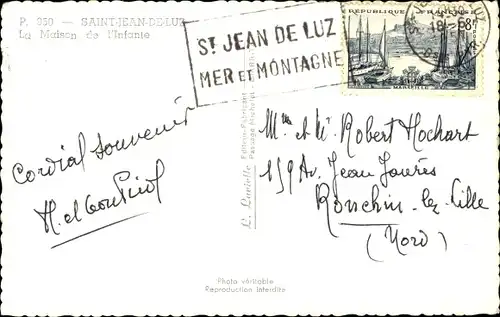 P. 950 - SAINT-JEAN-DE-LUZ
La Maison de l'Infante
ST JEAN DE LUZ
MER ET MONTAGNE
REPUBLIQUE FRANÇAISE
MARSEILLE
Cordial souvenir
Mme et M. Robert Hochart
159 Av. Jean Jaurès
Ronchin-lez-Lille
(Nord)
Photo véritable
Reproduction interdite